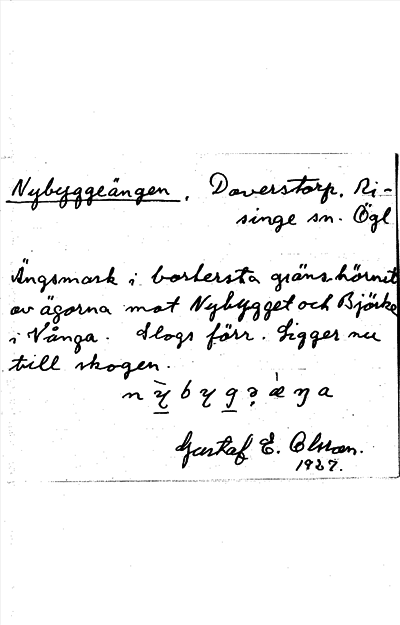 Nybyggeängen, Daverstorp, Ri-
singe sn. Ögl
Ängsmark i bortersta gränshörnet
av ägorna mot Nybygget och Björke
i Vånga. Slogs förr. Ligger nu
till skogen.
Gustaf E. Olsson.
1937.